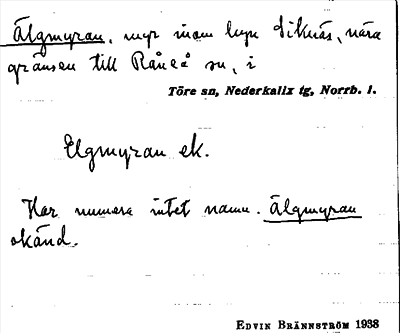 Älgmyran, myr inom byn Siknäs, nära
gränsen till Råneå sn, i
Töre sn, Nederkalix tg, Norrb. l.
Elgmyran ek.
Har numera intet namn. Älgmyran
okänd.
EDVIN BRÄNNSTRÖM 1938